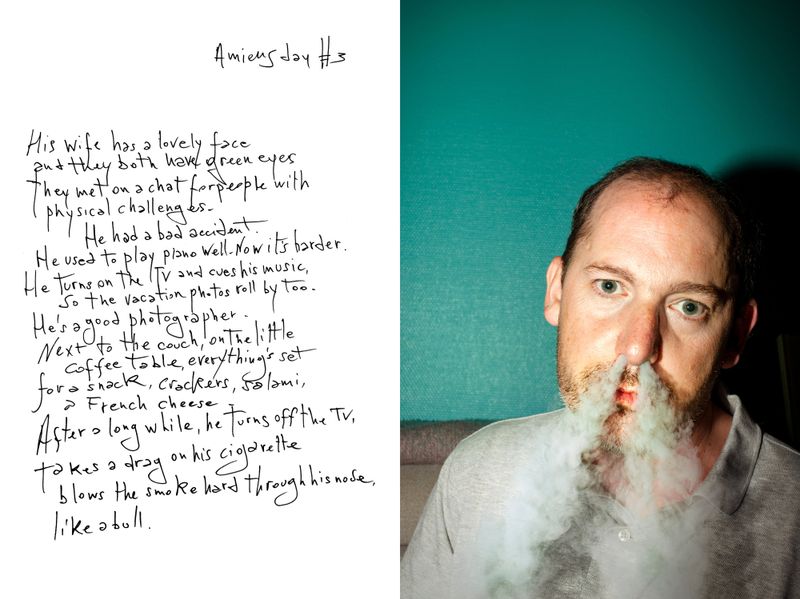 Amiens day #3
His wife has a lovely face
and they both have green eyes
They met on a chat for people with
physical challenges.
He had a bad accident.
He used to play piano well. Now it's harder.
He turns on the TV and cues his music,
so the vacation photos roll by too.
He's a good photographer.
Next to the couch, on the little
coffee table, everything's set
for a snack, crackers, salami,
a French cheese
After a long while, he turns off the TV,
takes a drag on his cigarette
blows the smoke hard through his nose,
like a bull.